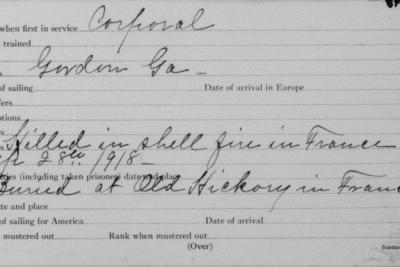 when first in service Corporal
trained
Gordon Ga -
of sailing Date of arrival in Europe
fers
ptions
Killed in shell fire in France
28th 1918 -
ties (including taken prisoner) date and place
Buried at Old Hickory in Franc
ate and place
of sailing for America Date of arrival
n mustered out Rank when mustered out
(Over)